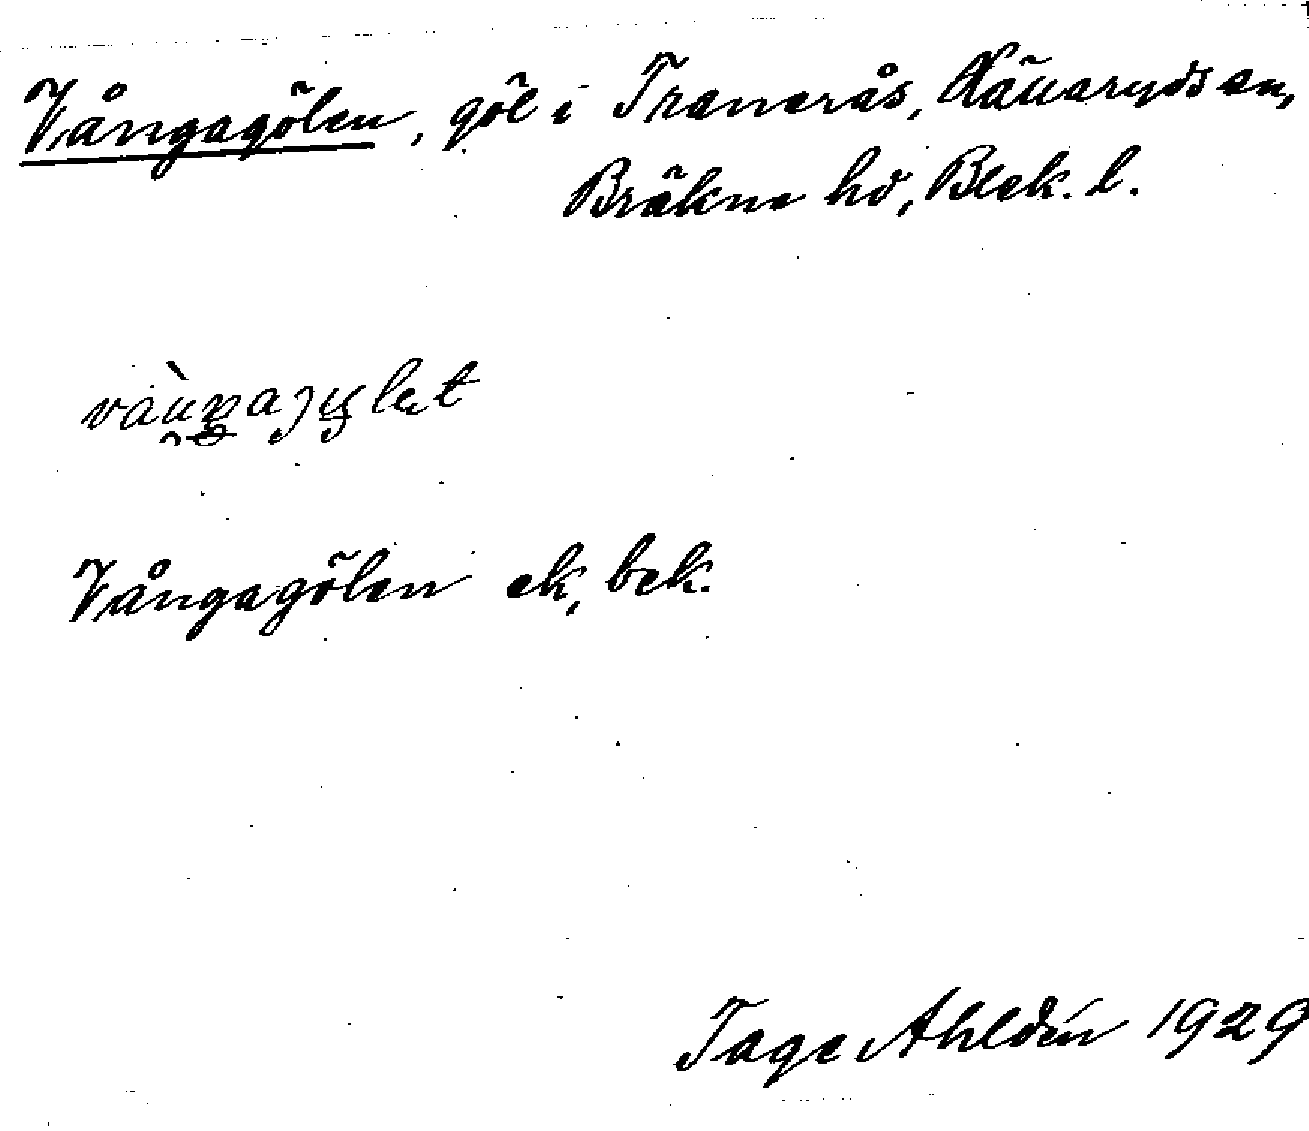 Vångagölen, göl i Tranerås, Backaryds sn,
Bräkne hd, Blek. l.
Vångagölen ek, bek.
Tage Ahldén 1929